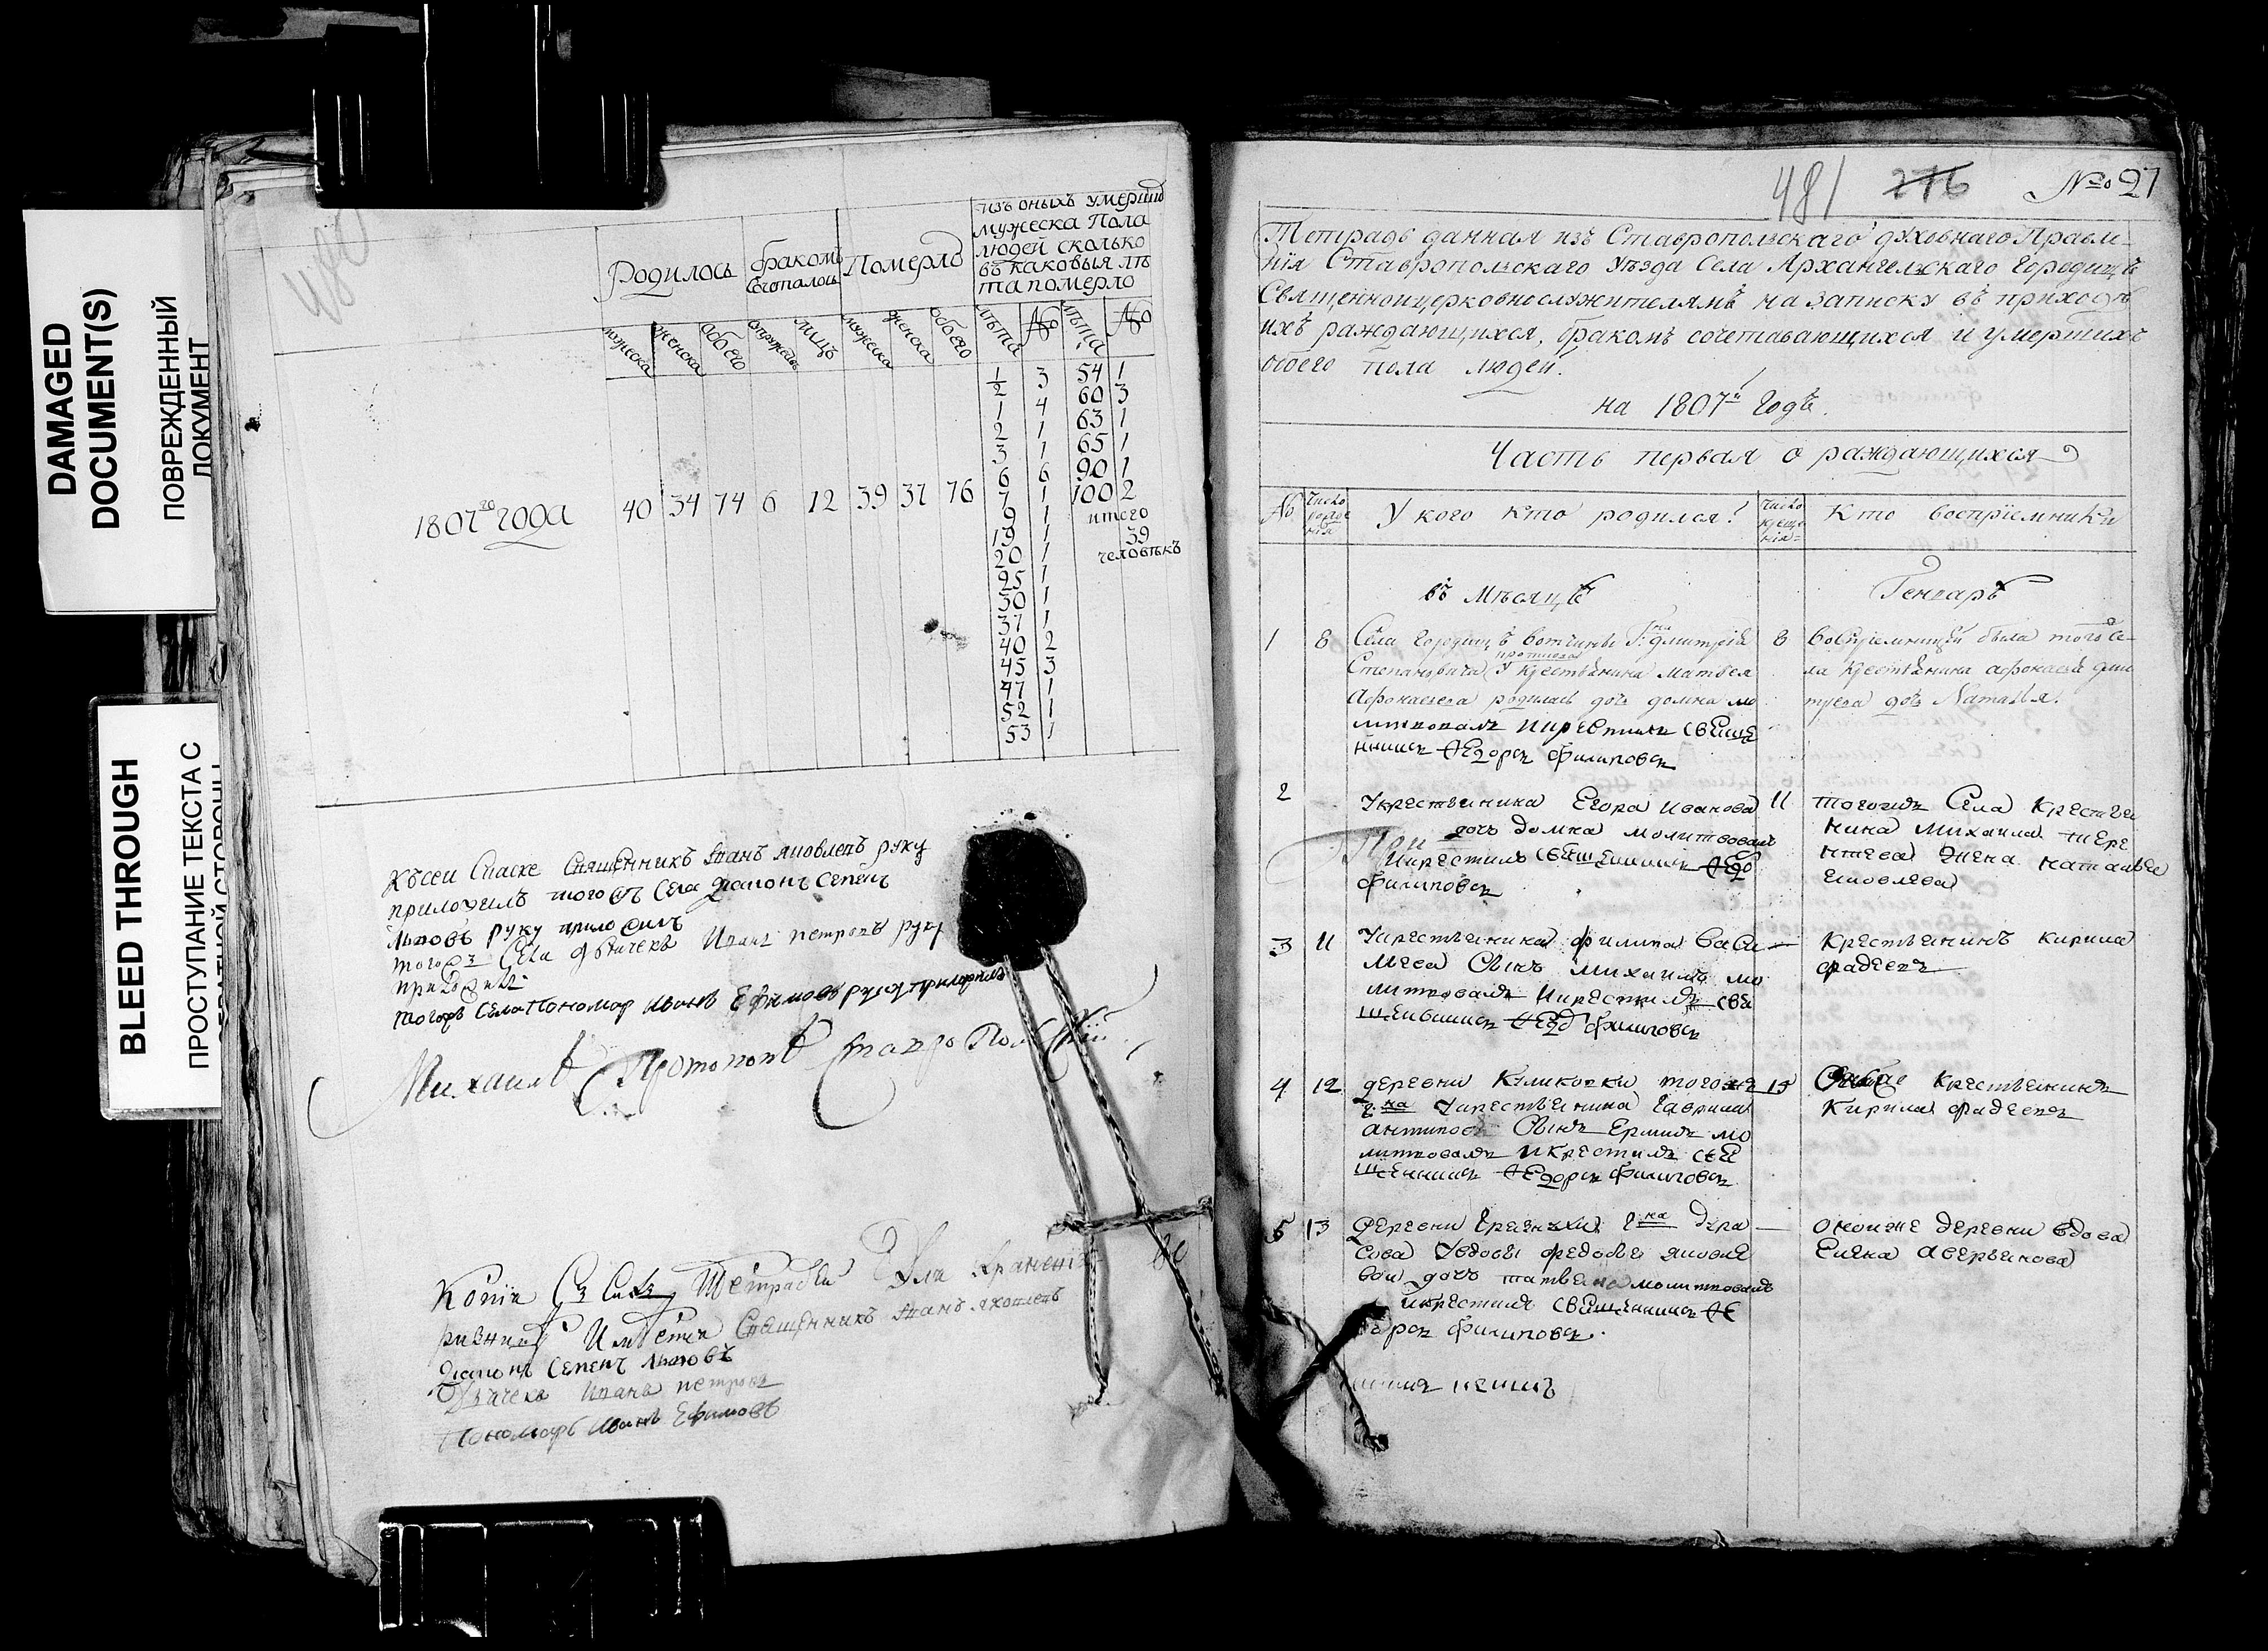 DAMAGED
DOCUMENT(S)
ПОВРЕЖДЕННЫЙ
ДОКУМЕНТ
BLEED THROUGH
ПРОСТУПАНИЕ ТЕКСТА С
480
Родилось
бракомъ
Сочеталось
Померло
изъ оныхъ умерши
мужеска Пола
людей сколько
въ каковыя лѣ
та померло
мужеска женска обоего лицъ мужеска женска обоего лѣта № лѣта №
1807го года 40 34 74 6 12 39 37 76
1/2 3 54 1
1 4 60 3
2 1 63 1
3 1 65 1
6 6 90 1
7 1 100 2
9 1 итого
19 1 39
20 1 человѣкъ
25 1
30 1
37 1
40 2
45 3
47 1
52 1
53 1
Священникъ Иванъ Яковлевъ руку
приложилъ того Села Диаконъ Семенъ
Львовъ руку приложилъ
Села дьячекъ Иванъ петровъ руку
Села Пономар Иванъ Ефимовъ руку приложилъ
Михаилъ Протопопъ
Копїя Для Хранения
Священникъ Иванъ Яковлевъ
Диаконъ Семенъ Львовъ
Дьячекъ Иванъ петровъ
Пономарь Иванъ Ефимовъ
481 276 № 27
Тетрадь данная изъ Ставропольскаго духовнаго Правле-
нїя Ставропольскаго Уѣзда Села Архангельскаго Городищъ
Священноицерковнослужителямъ на записку въ приходѣ
ихъ раждающихся, бракомъ сочетавающихся и умершихъ
обоего пола людей.
на 1807й Годъ.
Часть первая о раждающихся
№ Число рожде нїя У кого кто родился? Число креще нїя Кто воспрїемники
въ Мѣсяцѣ Генварѣ
1 8 Села Городищъ вотчины Г:на Дмитрїя
Степановича у крестьянина Матвея
Афонасьева родилась дочь домна мо
литвовалъ икрестилъ свяще
нникъ Федоръ филиповъ
8 воспрїемницей была тогоже Се-
ла крестьянина афонасья дми
трева дочь Наталья.
2 Укрестьянина Егора иванова
дочь домна молитвовалъ
икрестилъ священникъ Федо
филиповъ
11 тогожъ Села крестья
нина михаила тере
нтьева жена наталья
яковлева
3 11 Укрестьянина филипа Васи
льева Сынъ михаилъ мо
литвовалъ икрестилъ свя
щенникъ Фед филиповъ
крестьянинъ кирила
фадеевъ
4 12 деревни куликовки тогоже
г:на Укрестьянина гаврила
антипова Сынъ Ермилъ мо
литвовалъ икрестилъ свя
щенникъ Федоръ филиповъ
крестьянинъ
кирила фадеевъ
5 13 деревни грязнухи г:на дура
сова Увдовы федосьи яковле
вой дочь татьяна молитвовалъ
икрестилъ священникъ Фе
доръ филиповъ.
оноиже деревни вдова
Елена аверьянова